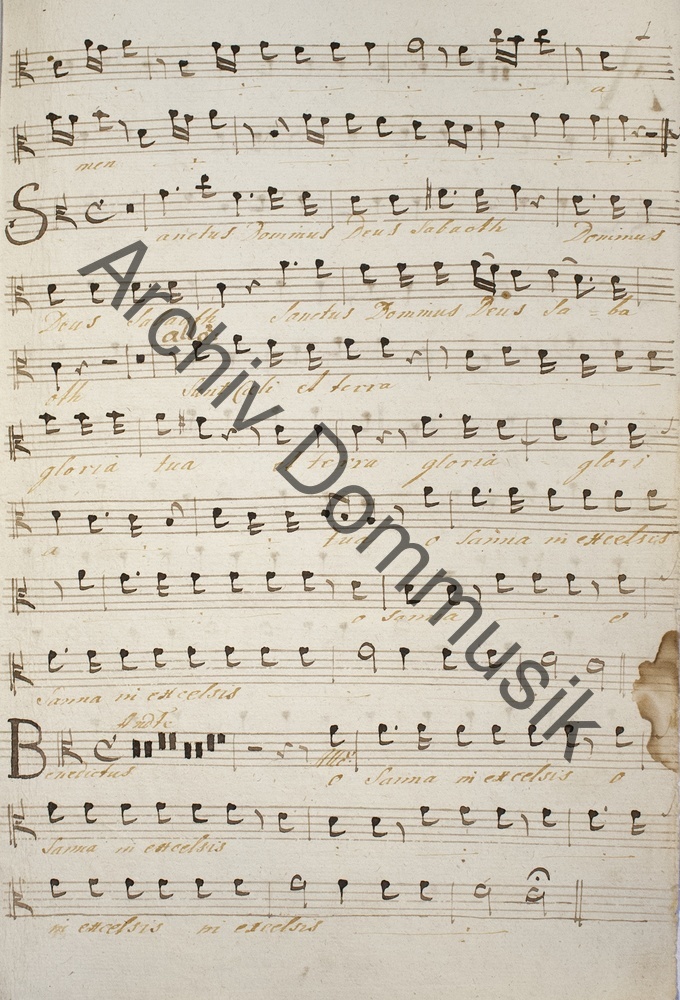 a
men
Sanctus Dominus Deus Sabaoth Dominus
Deus Sabaoth Sanctus Dominus Deus Sa - ba
allo
oth Sunt Coeli et terra
gloria tua et terra gloria glori
a tua o Sanna in excelsis
o Sanna o
Sanna in excelsis
Andte
Benedictus Allo: o Sanna in excelsis o
Sanna in excelsis
in excelsis in excelsis
Archiv Dommusik